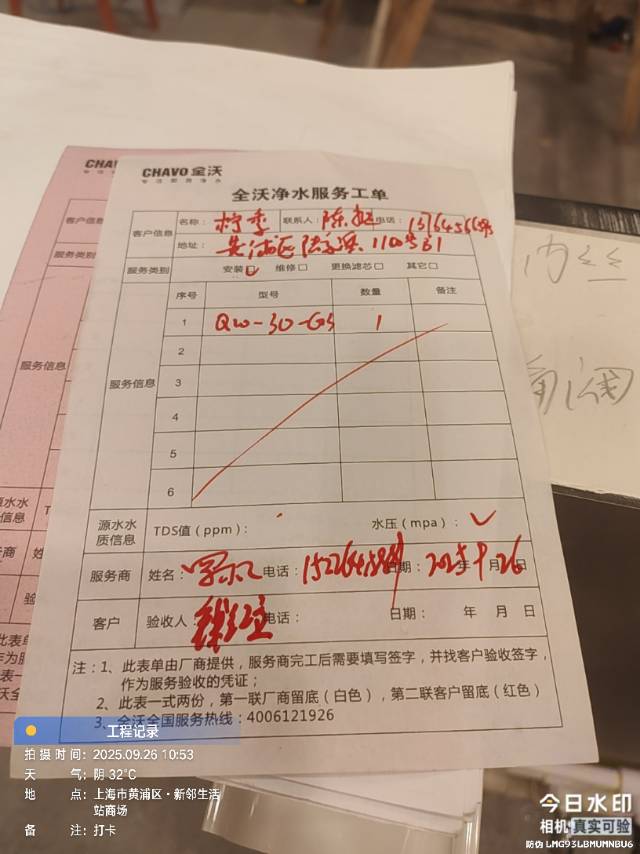 CHAVO 全沃
专注即热净水
全沃净水服务工单
客户信息
名称：柠季 联系人：陈 电话：
地址：黄浦区 110号B1
服务类别 安装☑ 维修☐ 更换滤芯☐ 其它☐
服务信息
序号 型号 数量 备注
1 QW-30-GS 1
2
3
4
5
6
源水水质信息 TDS值（ppm）： 水压（mpa）：✓
服务商 姓名： 电话： 日期：2025年9月26日
客户 验收人： 电话： 日期： 年 月 日
注：1、此表单由厂商提供，服务商完工后需要填写签字，并找客户验收签字，
作为服务验收的凭证；
2、此表一式两份，第一联厂商留底（白色），第二联客户留底（红色）
3、全沃全国服务热线：4006121926
CHA
客户信息
服务类别
服务信息
工程记录
拍摄时间：2025.09.26 10:53
天 气：阴 32℃
地 点：上海市黄浦区·新邻生活
站商场
备 注：打卡
今日水印
相机 真实可验
防伪 LMG93LBMUMNBU6
内丝
角阀